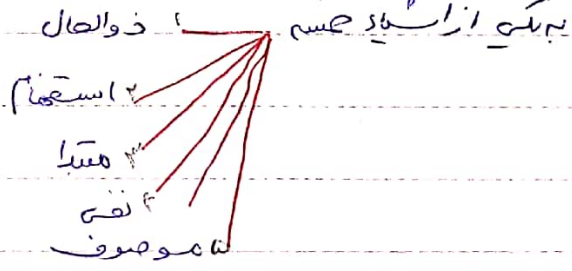 به یکی از اشیاءِ خمسه
۱ ذوالحال
۲ استفهام
۳ مبتدا
۴ نفی
۵ موصوف